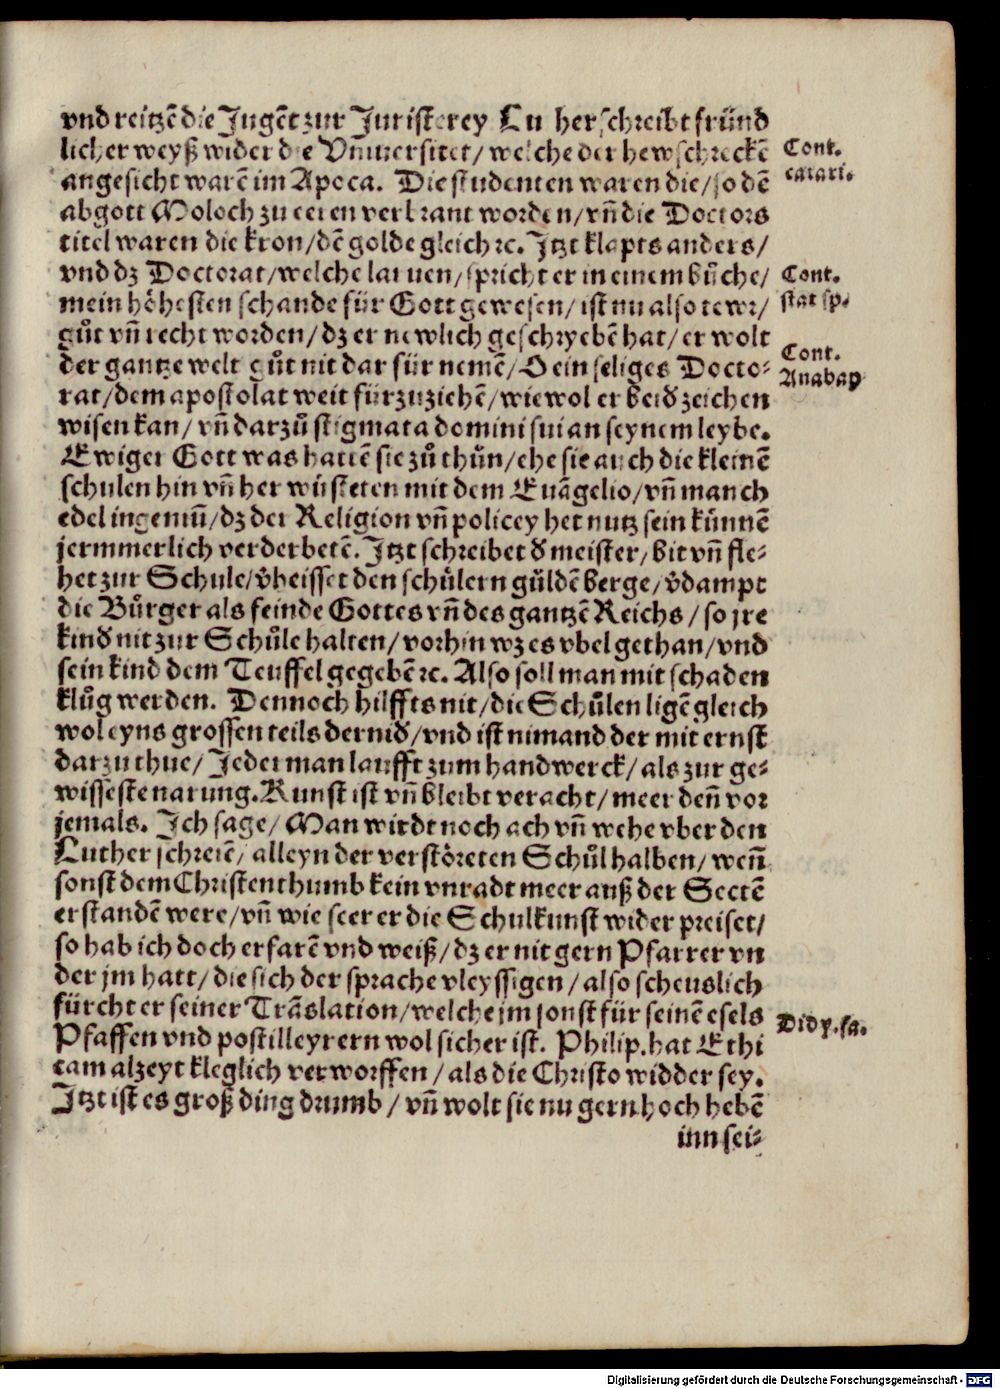 vnd reitzē die Jugēt zur Juristerey Lu her schreibt fründ
licher weyß wider die Vniuersitet/ welche der hewschreckē
angesicht warē im Apoca. Die studenten waren die/ so dē
abgott Moloch zu eeren verbrant worden/ vn̄ die Doctors
titel waren die kron/ dē golde gleich ꝛc. Jtzt klapts anders/
vnd dz Doctorat/ welche laruen/ spricht er in einem bůche/
mein höhesten schande für Gott gewesen/ ist nu also tewr/
gůt vn̄ recht worden/ dz er newlich geschryebē hat/ er wolt
der gantze welt gůt nit dar für nemē/ O ein seliges Docto-
rat/ dem apostolat weit fürzuziehē/ wiewol er beid zeichen
wisen kan/ vn̄ darzů stigmata domini sui an seynem leybe.
Ewiger Gott was hattē sie zů thůn/ ehe sie auch die kleinē
schulen hin vn̄ her wüsteten mit dem Euāgelio/ vn̄ manch
edel ingeniū/ dz der Religion vn̄ policey het nutz sein künnē
jermmerlich verderbetē. Jtzt schreibet d̕ meister/ bit vn̄ fle-
het zur Schule/ v̕heisset den schůlern güldē berge/ v̕dampt
die Bürger als feinde Gottes vn̄ des gantzē Reichs/ so jre
kind nit zur Schůle halten/ vorhin wz es vbel gethan/ vnd
sein kind dem Teuffel gegebē ꝛc. Also soll man mit schaden
klůg werden. Dennoch hilffts nit/ die Schůlen ligē gleich
wol eyns grossen teils dernid̕/ vnd ist nimand der mit ernst
darzu thue/ Jederman laufft zum handwerck/ als zur ge-
wissesten arung. Kunst ist vn̄ bleibt veracht/ meer den̄ vor
jemals. Jch sage/ Man wirdt noch ach vn̄ wehe vber den
Luther schreiē/ alleyn der verstöreten Schůl halben/ wen̄
sonst dem Christenthumb kein vnradt meer auß der Sectē
erstandē were/ vn̄ wie seer er die Schulkunst wider preiset/
so hab ich doch erfarē vnd weiß/ dz er nit gern Pfarrer vn
der jm hatt/ die sich der sprache vleyssigen/ also scheuslich
fürcht er seiner Trāslation/ welche jm sonst für seinē esels
Pfaffen vnd postilleyrern wol sicher ist. Philip. hat Ethi
cam alzeyt kleglich verworffen/ als die Christo widder sey.
Jtzt ist es groß ding drumb/ vn̄ wolt sie nu gern hoch hebē
inn sei-
Cont.
catari.
Cont.
stat sp.
Cont.
Anabap
Did y. fa.
Digitalisierung gefördert durch die Deutsche Forschungsgemeinschaft - DFG